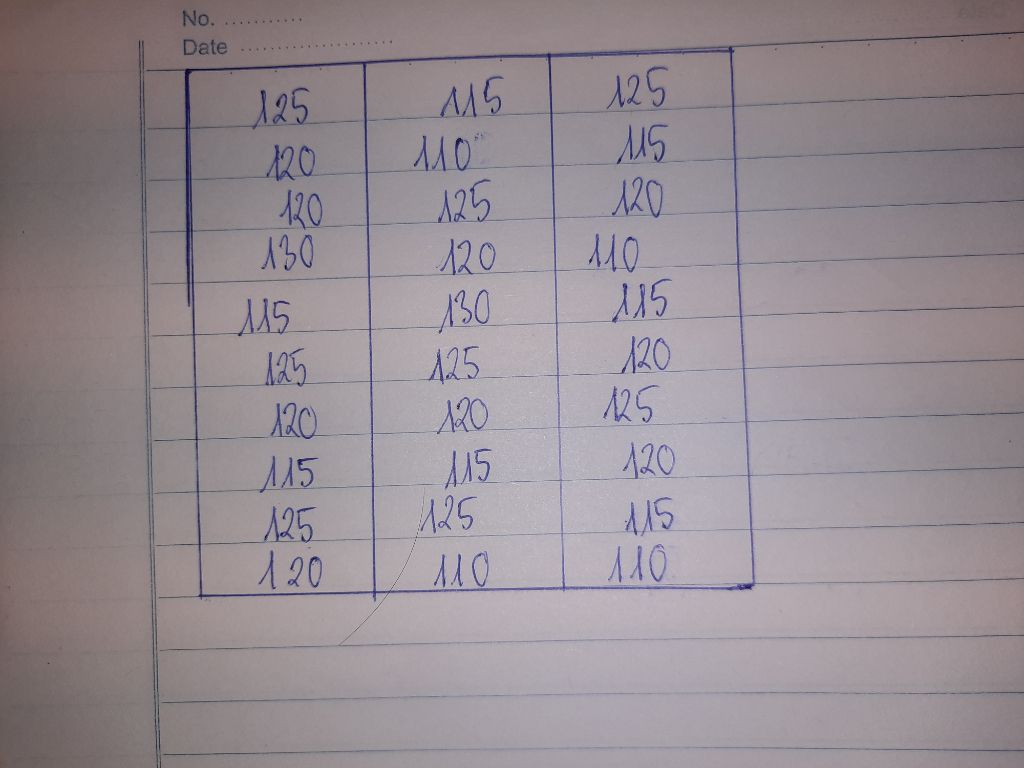 No. ............
Date ........................
125 115 125
120 110 115
120 125 120
130 120 110
115 130 115
125 125 120
120 120 125
115 115 120
125 125 115
120 110 110